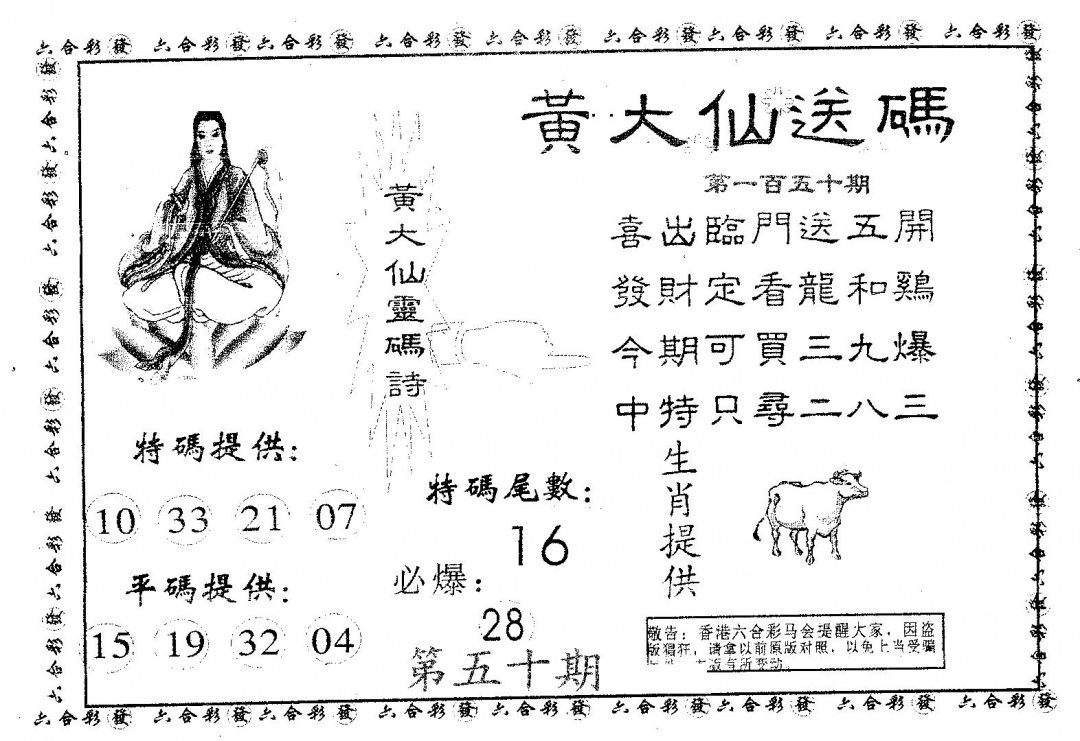 六合彩發 六合彩發 六合彩發 六合彩發 六合彩發 六合彩發 六合彩發 六合彩發 六合彩發
黃大仙送碼
第一百五十期
黃大仙靈碼詩
喜出臨門送五開
發財定看龍和鷄
今期可買三九爆
中特只尋二八三
特碼提供：
10 33 21 07
平碼提供：
15 19 32 04
特碼尾數：
16
必爆：
28
第五十期
生肖提供
敬告：香港六合彩马会提醒大家，因盗
版猖狂，请拿以前原版对照，以免上当受骗
版有所变动。
六合彩發 六合彩發 六合彩發 六合彩發 六合彩發 六合彩發 六合彩發 六合彩發 六合彩發